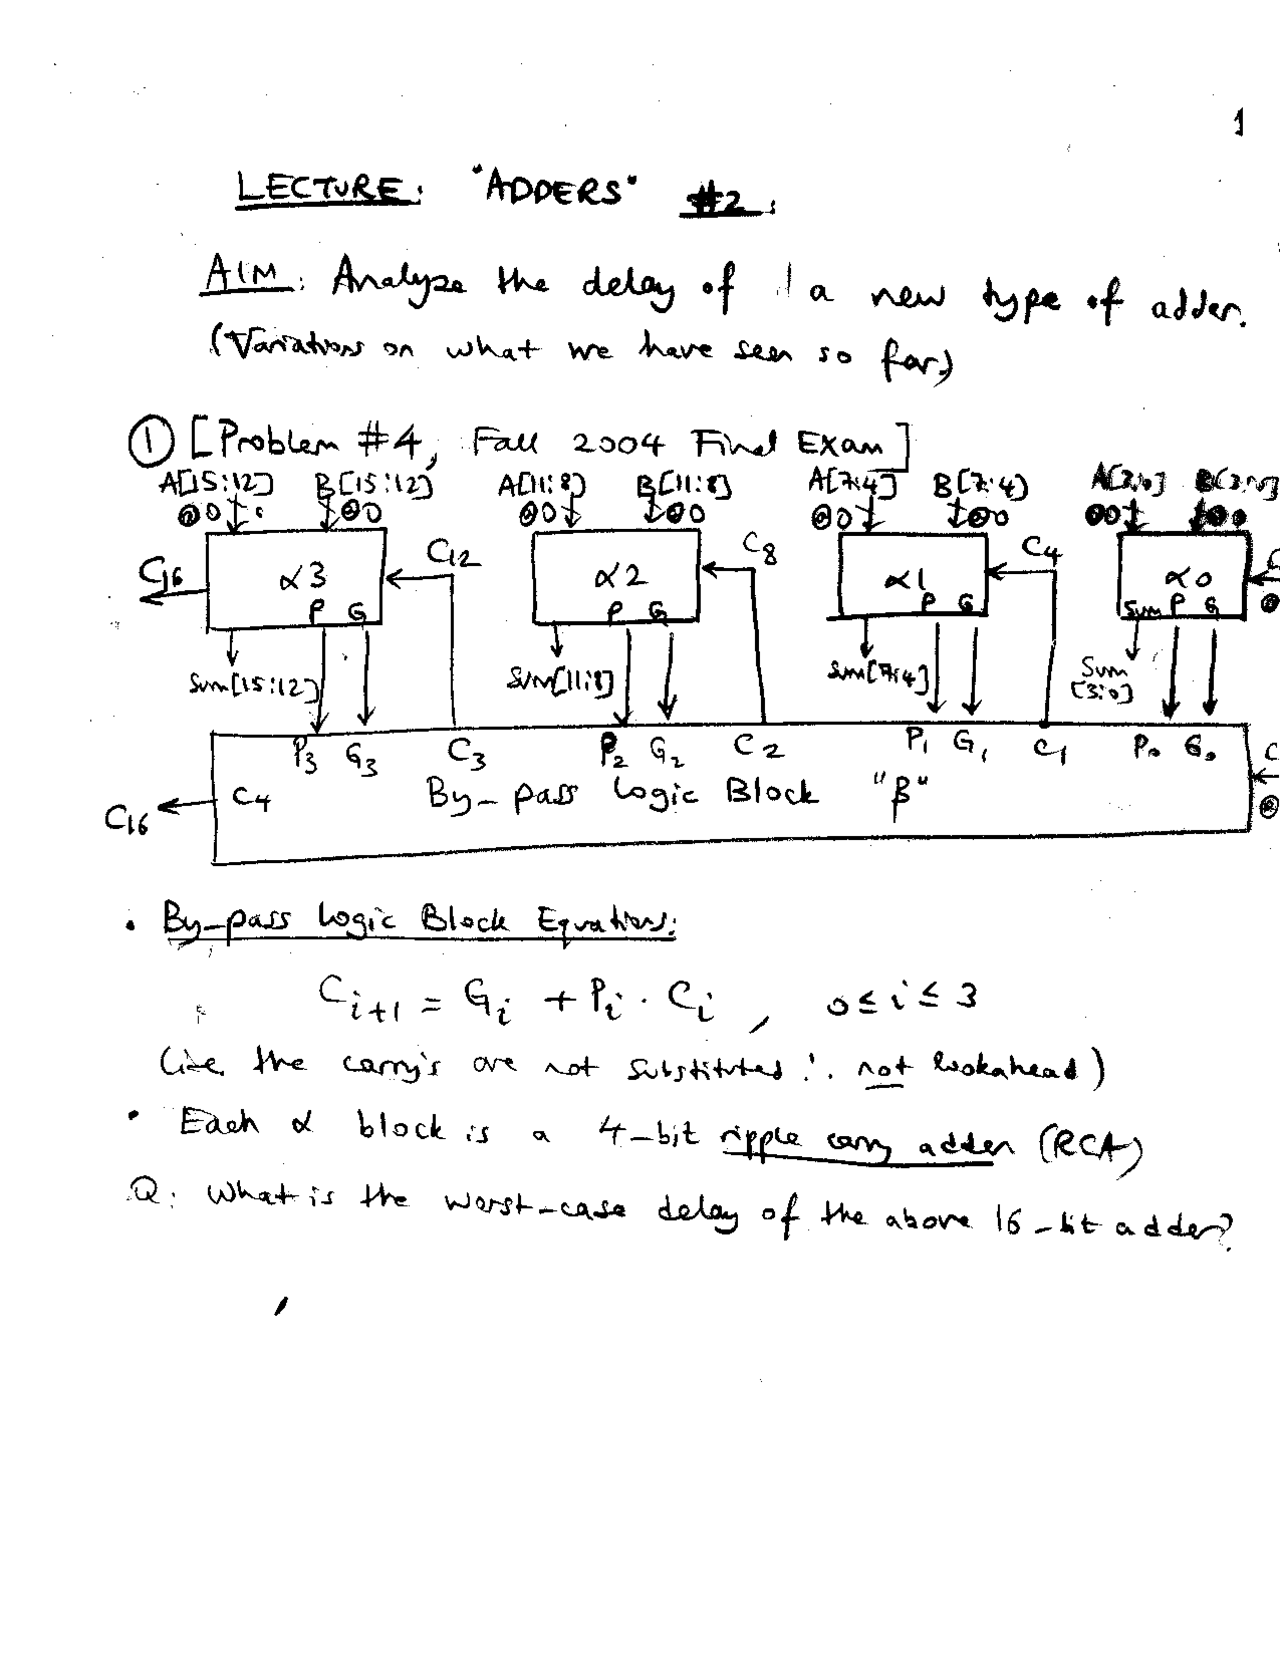 1
LECTURE: "ADDERS" #2:
AIM: Analyze the delay of a new type of adder.
(Variations on what we have seen so far)
① [Problem #4, Fall 2004 Final Exam]
A[15:12] B[15:12] A[11:8] B[11:8] A[7:4] B[7:4] A[3:0] B[3:0]
@0 @0 @0 @0 @0 @0 @0 @0
C16 α3 C12 α2 C8 α1 C4 α0 C
P G P G P G Sum P G @
Sum[15:12] Sum[11:8] Sum[7:4] Sum [3:0]
P3 G3 C3 P2 G2 C2 P1 G1 C1 P0 G0 C
C16 C4 By-pass Logic Block "β" @
• By-pass Logic Block Equations:
Ci+1 = Gi + Pi · Ci , 0 ≤ i ≤ 3
(i.e. the carry's are not substituted ∴ not lookahead)
• Each α block is a 4-bit ripple carry adder (RCA)
Q: What is the worst-case delay of the above 16-bit adder?